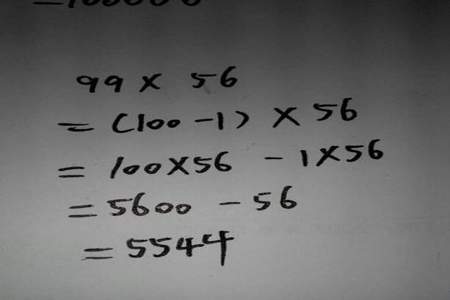 99 × 56
= (100 - 1) × 56
= 100 × 56 - 1 × 56
= 5600 - 56
= 5544